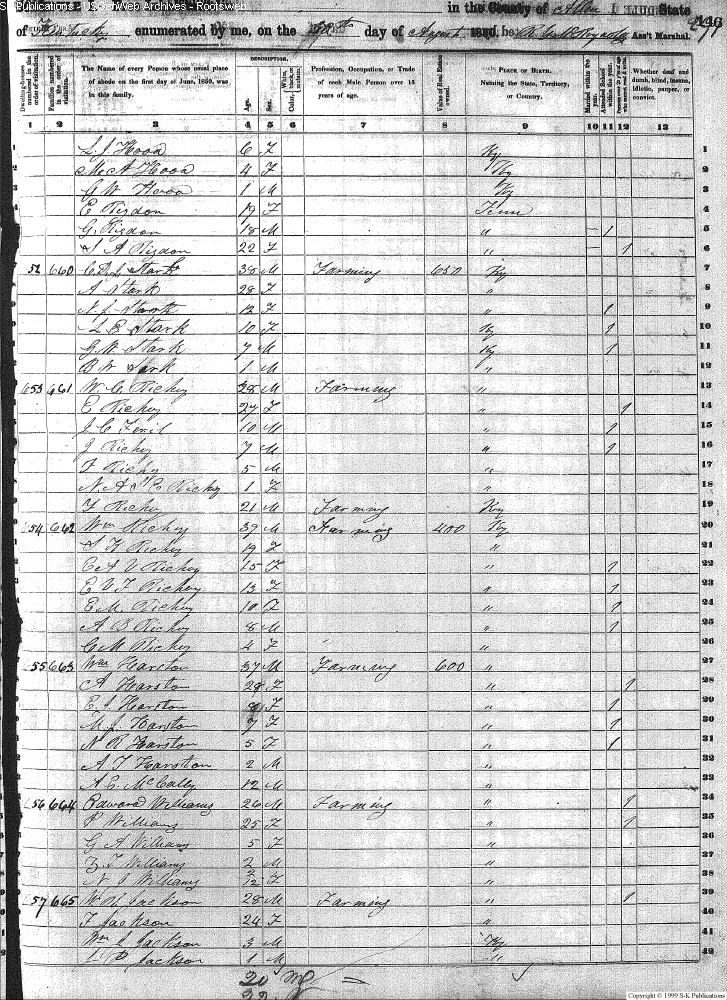 S-K Publications - USGenWeb Archives - Rootsweb
in the County of Allen State
of Kentucky enumerated by me, on the day of August 1850. Ass't Marshal. 290
Dwelling-houses numbered in the order of visitation.
Families numbered in the order of visitation.
The Name of every Person whose usual place of abode on the first day of June, 1850, was in this family.
DESCRIPTION.
Age.
Sex.
White, black, or mulatto.
Color,
Profession, Occupation, or Trade of each Male Person over 15 years of age.
Value of Real Estate owned.
PLACE OF BIRTH. Naming the State, Territory, or Country.
Married within the year.
Attended School within the year.
Whether deaf and dumb, blind, insane, idiotic, pauper, or convict.
1 2 3 4 5 6 7 8 9 10 11 12 13
1 L J Hood 6 F Ky 1
2 M A Hood 4 F Ky 2
3 G W Hood 1 M Ky 3
4 E Risdon 19 F Tenn 4
5 G Risdon 18 M " 1 5
6 S A Risdon 22 F " 1 6
7 52 660 Stark 38 M Farming 650 Ky 7
8 A Stark 28 F " 8
9 N J Stark 12 F " 1 9
10 L E Stark 10 F Ky 1 10
11 G W Stark 7 M Ky 1 11
12 B W Stark 1 M " 12
13 653 661 W C Richey 28 M Farming " 13
E Richey 27 F " 1 14
J C 10 M " 1 15
J Richey 7 M " 1 16
F Richey 5 M " 17
N A E Richey 1 F " 18
F Richey 21 M Farming Ky 19
654 662 Wm Richey 39 M Farming 400 Ky 20
S F Richey 19 F " 21
E A V Richey 15 F " 1 22
E V F Richey 13 F " 1 23
E M Richey 10 F " 1 24
A B Richey 8 M " 1 25
C M Richey 4 F " 26
55 663 Wm Harston 37 M Farming 600 " 27
A Harston 29 F " 1 28
E J Harston F " 1 29
M J Harston 7 F " 1 30
N R Harston 5 F " 1 31
A T Harston 2 M "
A C McCally 12 M "
56 664 Edward Williams 26 M Farming " 1 34
P Williams 25 F " 1 35
G A Williams 5 F "
Z T Williams 2 M "
N J Williams 2/12 F "
57 665 W R Jackson 28 M Farming " 1 39
F Jackson 24 F " 40
Wm J Jackson 3 M Ky 41
L P Jackson 1 M " 42
20 M =
22
Copyright © 1999 S-K Publications